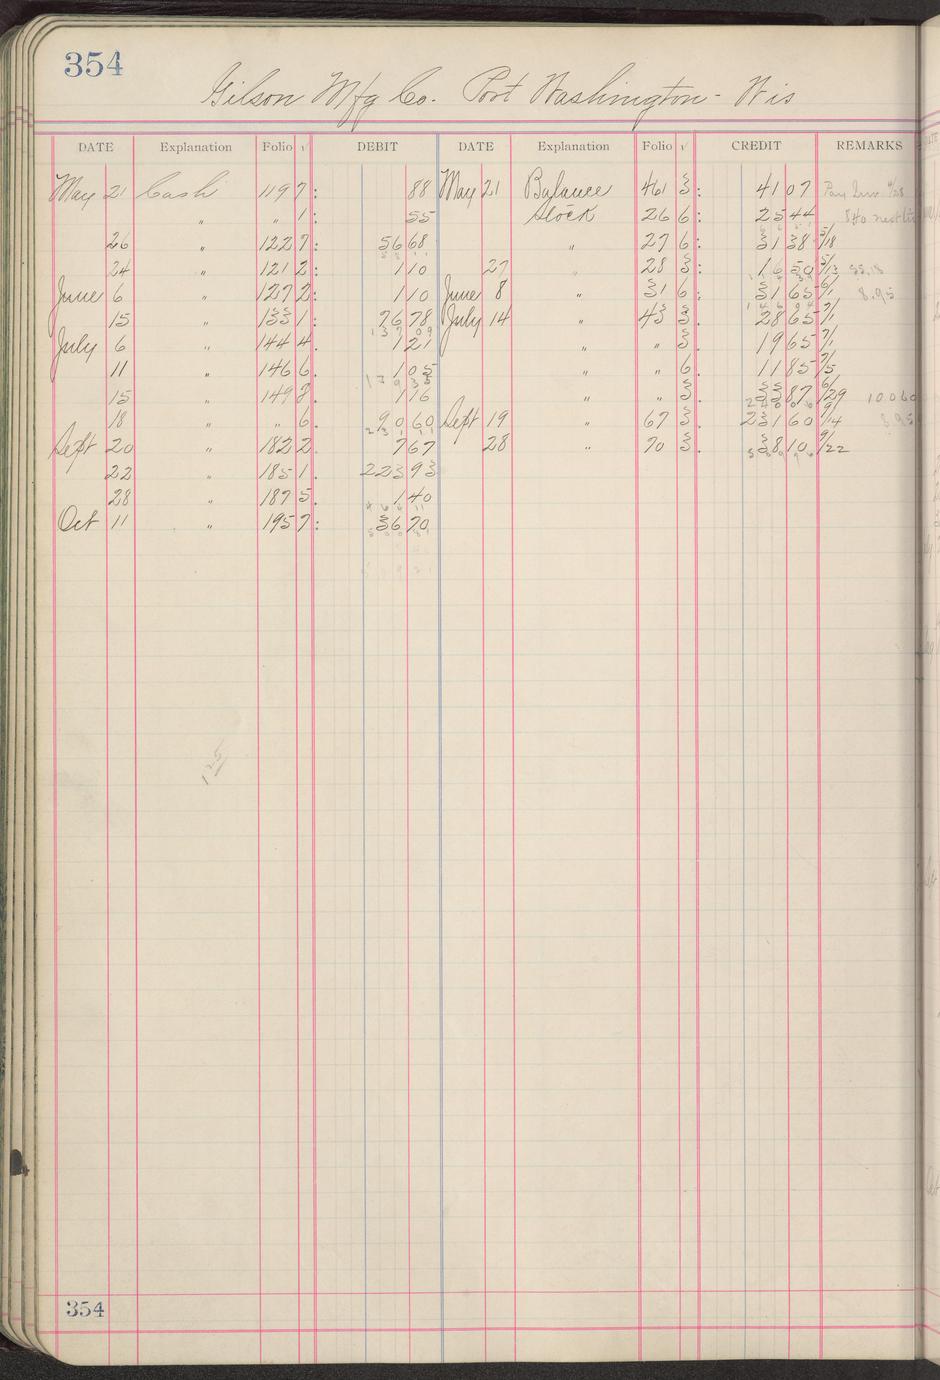 354
Gilson Mfg Co. Port Washington - Wis
DATE Explanation Folio √ DEBIT DATE Explanation Folio √ CREDIT REMARKS
May 21 Cash 119 7: 88 May 21 Balance 461 3: 41 07 Pay Inv 4/28
" " 1: 55 Stock 26 6: 25 44 840 next
26 " 122 7: 56 68 " 27 6: 31 38 5/18
24 " 121 2: 1 10 27 " 28 3: 16 50 5/13 55.18
June 6 " 127 2: 1 10 June 8 " 31 6: 31 65 6/1 8.95
15 " 133 1: 76 78 July 14 " 43 3. 28 65 7/1
July 6 " 144 4. 1 21 " " 3. 19 65 7/1
11 " 146 6. 1 05 " " 6. 11 85 7/5
15 " 149 8. 1 16 " 3. 33 87 6/29 100 60
18 " " 6. 90 60 Sept 19 " 67 3. 231 60 9/14 8.95
Sept 20 " 182 2. 7 67 28 " 70 3. 38 10 9/22
22 " 185 1. 223 93
28 " 187 5. 1 40
Oct 11 " 195 7: 36 70
354